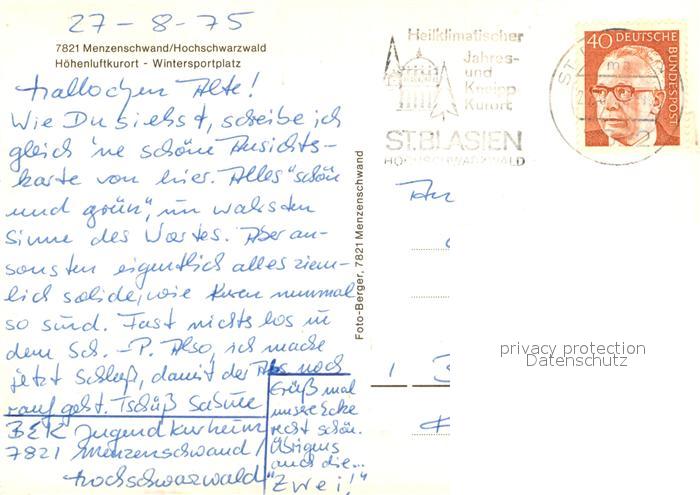 27-8-75
7821 Menzenschwand/Hochschwarzwald
Höhenluftkurort - Wintersportplatz
Hallochen Alte!
Wie Du siehst, scheibe ich
gleich 'ne schöne Ansichts-
karte von hier. Alles "schön
und grün", im wahrsten
Sinne des Wortes. Aber an-
sonsten eigentlich alles ziem-
lich solide, wie Kuren nunmal
so sind. Fast nichts los in
dem Sch.-P. Also, ich mache
jetzt Schluß, damit der Abs noch
rauf geht. Tschüß Sabine
BEK Jugendkurheim
7821 Menzenschwand/
Hochschwarzwald
Grüß mal
unsre Ecke
recht schön.
Übrigens
auch die...
"Zwei!"
Foto-Berger, 7821 Menzenschwand
Heilklimatischer
Jahres-
und
Kneipp
Kurort
ST. BLASIEN
HOCHSCHWARZWALD
40 DEUTSCHE
BUNDESPOST
An
privacy protection
Datenschutz